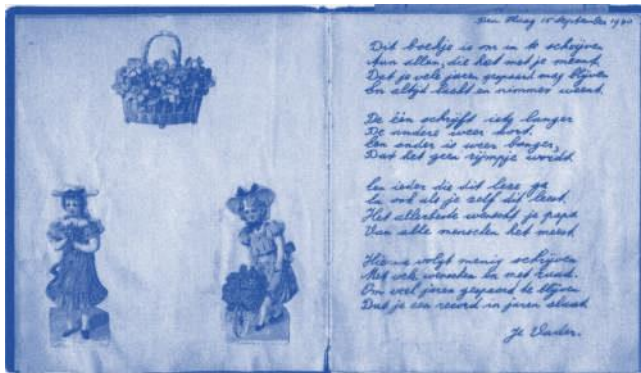 Den Haag 15 September 1940
Dit boekje is om in te schrijven
Aan allen, die het met je meent.
Dat je vele jaren gespaard mag blijven
En altijd lacht en nimmer weent.
De één schrijft iets langer
De andere weer kort.
Een ander is weer banger,
Dat het geen rijmpje wordt.
En ieder die dit leze ga
En ook als je zelf dit leest.
Het allerbeste wenscht je papa
Van alle menschen het meest
Hierna volgt menig schrijven
Met vele wenschen en met raad.
Om veel jaren gespaard te blijven
Dat je een record in jaren slaat
Je Vader.